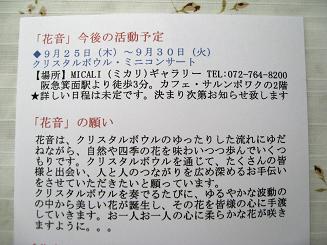 「花音」今後の活動予定
◆９月２５日（木）～９月３０日（火）
クリスタルボウル・ミニコンサート
【場所】MICALI（ミカリ）ギャラリー TEL:072-764-8200
阪急箕面駅より徒歩3分。カフェ・サルンポワクの2階
★詳しい日程は未定です。決まり次第お知らせ致します
「花音」の願い
花音は、クリスタルボウルのゆったりした流れにゆだ
ねながら、自然や四季の花を味わいつつ歩んでいくつ
もりです。クリスタルボウルを通じて、たくさんの皆
様と出会い、人と人のつながりを広め深めるお手伝い
をさせていただきたいと願っています。
クリスタルボウルを奏でるたびに、ゆるやかな波動の
の中から美しい花が誕生し、その花を皆様の心に手渡
していきます。お一人お一人の心に柔らかな花が咲き
ますように。。。